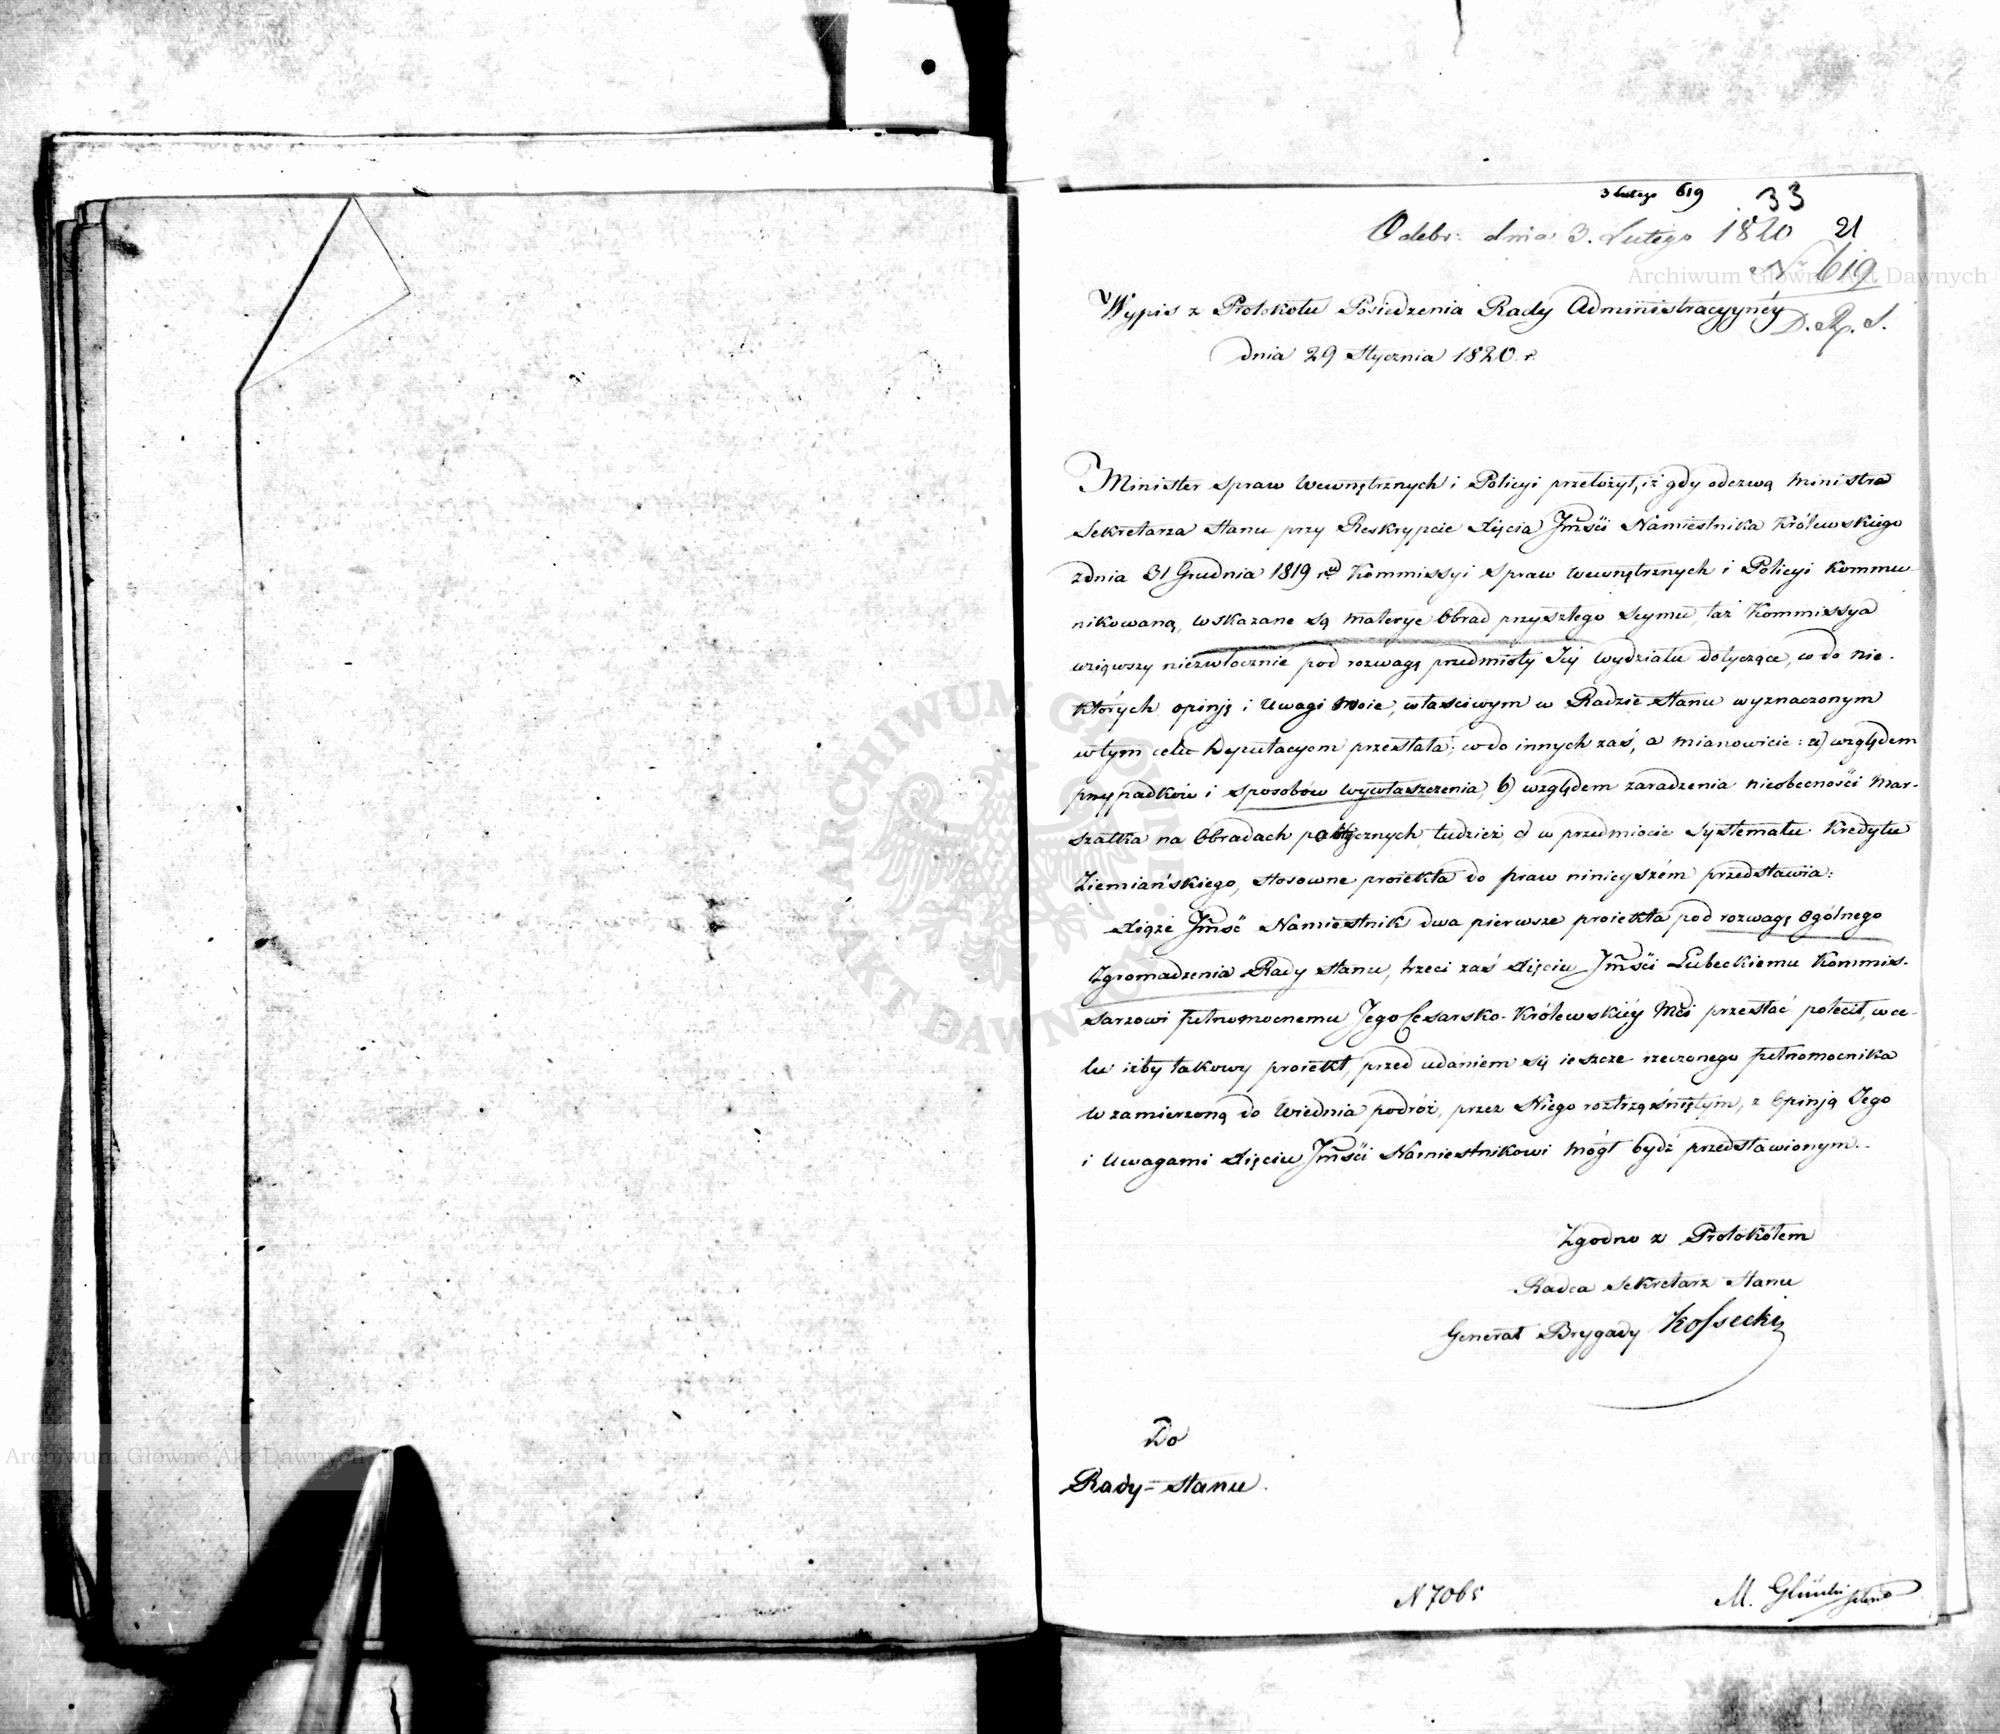 3 Lutego 619
33
Odebr: dnia 3. Lutego 1820 21
N 619
Wypis z Protokołu Posiedzenia Rady Administracyyney
D. R. S.
dnia 29 Stycznia 1820 r.
Minister Spraw Wewnętrznych i Policyi przełożył, iż gdy odezwą Ministra
Sekretarza Stanu przy Reskrypcie Xięcia Jmści Namiestnika Królewskiego
z dnia 31 Grudnia 1819 r. Kommissyi Spraw Wewnętrznych i Policyi kommu-
nikowaną, wskazane są materye Obrad przyszłego Seymu taż Kommissya
wziąwszy niezwłocznie pod rozwagę przedmioty Jey Wydziału dotyczące, co do nie-
których opinję i Uwagi swoie, właściwym w Radzie Stanu wyznaczonym
w tym celu Deputacyom przesłała; co do innych zaś, a mianowicie: a) względem
przypadków i sposobów wywłaszczenia, b) względem zaradzenia nieobecności Mar-
szałka na Obradach publicznych, tudzież, c) w przedmiocie Systematu Kredytu
Ziemiańskiego, stosowne proiekta do praw ninieyszém przedstawia:
Xiąże Jmść Namiestnik dwa pierwsze proiekta pod rozwagę Ogólnego
Zgromadzenia Rady Stanu, trzeci zaś Xięciu Jmści Lubeckiemu Kommis-
sarzowi pełnomocnemu Jego Cesarsko-Królewskiéy Mści przesłać polecił, w ce-
lu iżby takowy proiekt, przed udaniem się ieszcze rzeczonego pełnomocnika
w zamierzoną do Wiednia podróż, przez Niego roztrząśniętym, z Opinją Jego
i Uwagami Xięciu Jmści Namiestnikowi mógł bydź przedstawionym.
Zgodno z Protokółem
Radca Sekretarz Stanu
Generał Brygady Kossecki
Do
Rady Stanu.
N 7065
M.
Archiwum Główne Akt Dawnych
Archiwum Główne Akt Dawnych
ARCHIWUM GŁÓWNE AKT DAWNYCH